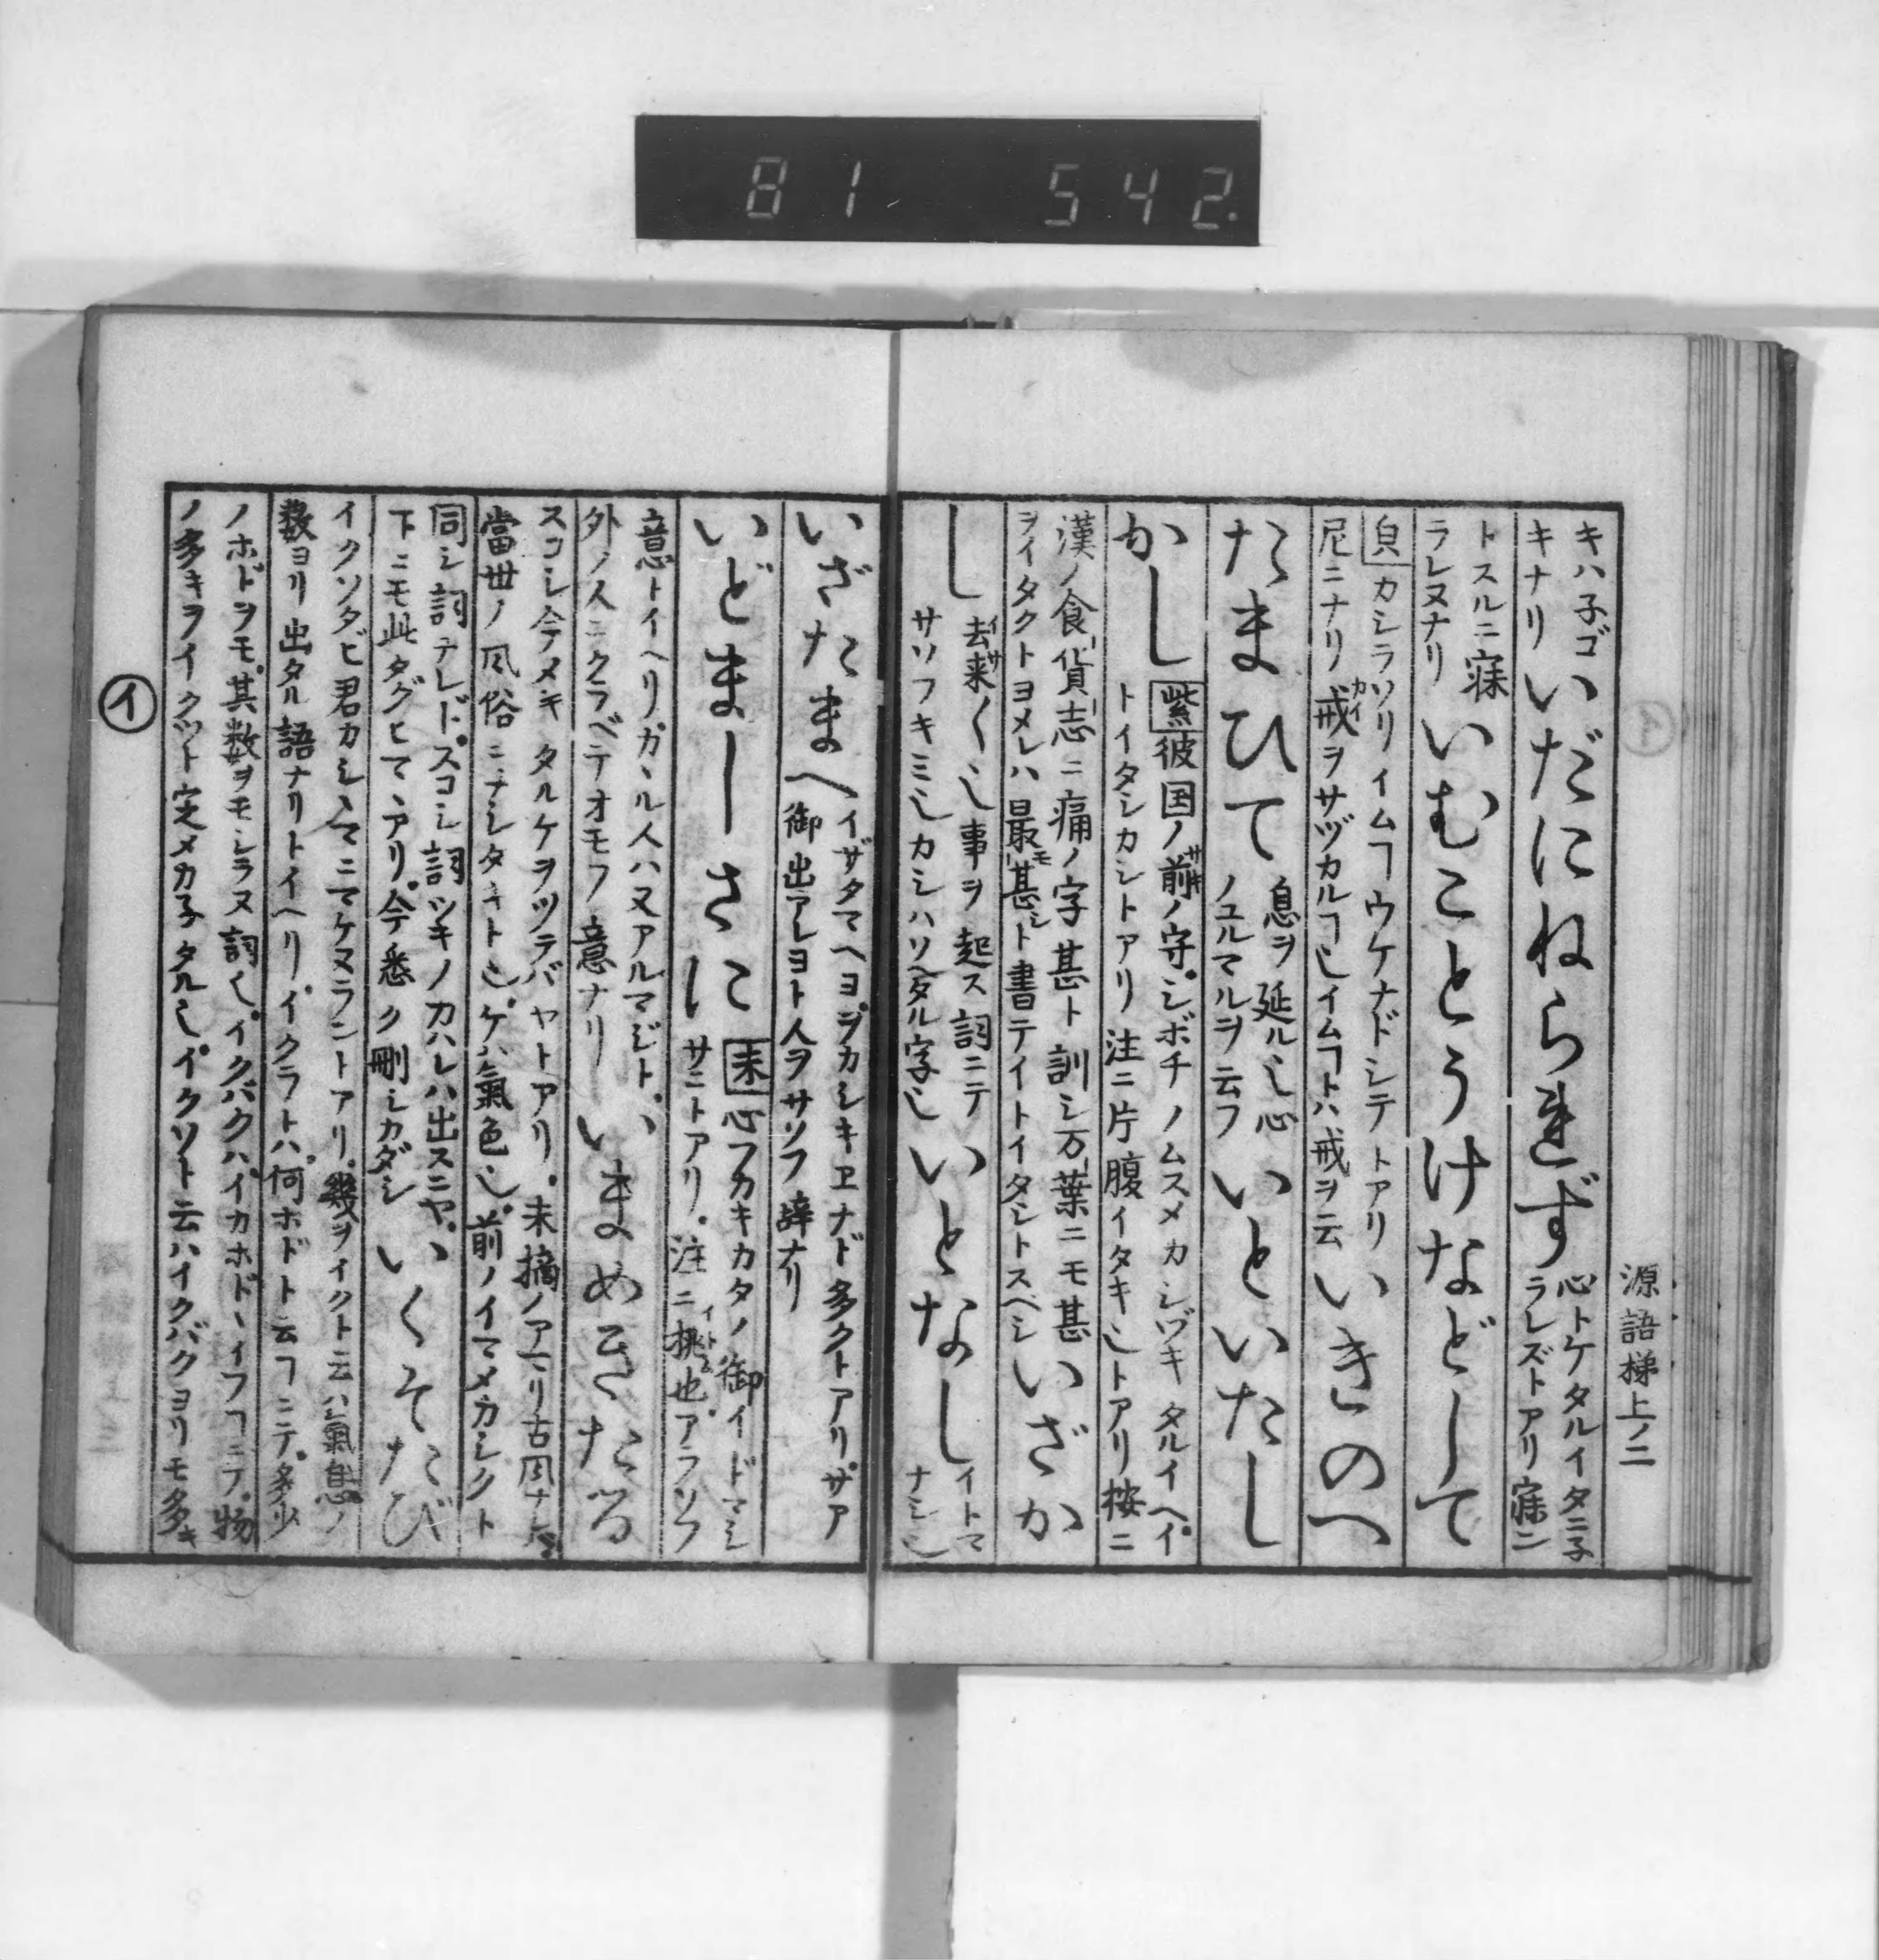 81 542
源語梯上ノ二
キハ子ゴ
キナリ
いだにねられず
心トケタルイタニ子
ラレズトアリ寐ン
トスルニ寐
ラレヌナリ
いむことうけなどして
カシラソリイムヿウケナドシテトアリ
尼ニナリ戒ヲサヅカルヿ也イムヿトハ戒ヲ云
いきのへ
たまひて
息ヲ延ル也心
ノユルマルヲ云フ
いといたし
かし
紫彼国ノ前ノ守シボチノムスメカシヅキタルイヘイ
トイタシカシトアリ注ニ片腹イタキ也トアリ按ニ
漢ノ食貨志ニ痛ノ字甚ト訓シ万葉ニモ甚
ヲイタクトヨメレハ最甚ト書テイトイタシトスベシ
いざか
し
去来〱也事ヲ起ス詞ニテ
サソフキミ也カシハソヘタル字也
いとなし
イトマ
ナシ也
いざたまへ
イザタマヘヨヲカシキヱナド多クトアリサア
御出アレヨト人ヲサソフ辞ナリ
いどましさに
末心フカキカタノ御イドマシ
サニトアリ注ニ挑也アラソフ
意トイヘリガヽル人ハ又アルマジト
外ノ人ニクラベテオモフ意ナリ
いまめきたる
スコシ今メキタルケヲツラバヤトアリ末摘ノアマリ古風ナレバ
當世ノ風俗ニナシタキト也ケハ氣色也前ノイマメカシクト
同シ詞ナレドスコシ詞ツキノカハレハ出スニヤ
下ニモ此タグヒマヽアリ今悉ク刪シカダシ
いくそたび
イクソタビ君カシヽマニマケヌラントアリ幾ヲイクト云ハ氣息ノ
数ヨリ出タル語ナリトイヘリイクラトハ何ホドト云フヿニテ多少
ノホドヲモ其数ヲモシラヌ詞也イクバクハイカホドヽイフヿニテ物
ノ多キヲイクツト定メカ子タル也イクソト云ハイクバクヨリモ多キ
イ